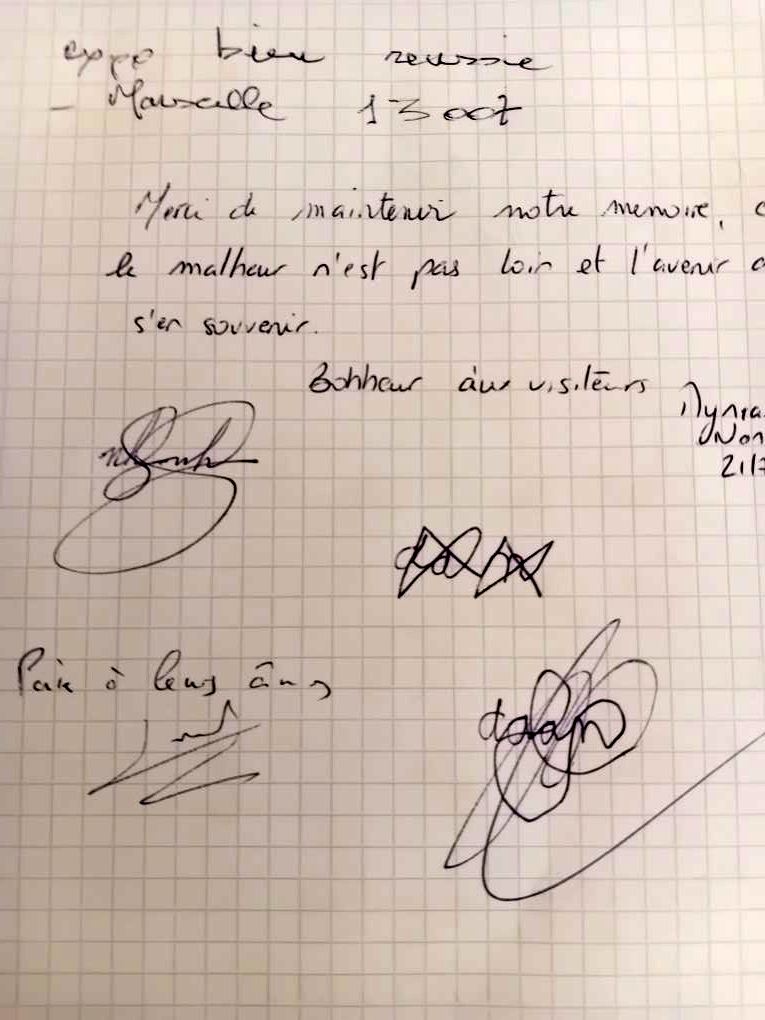 expo bien reussie
- Marseille 13007
Merci de maintenir notre memoire,
le malheur n'est pas loin et l'avenir
s'en souvenir.
Bonheur aux visiteurs
Paix à leurs âmes